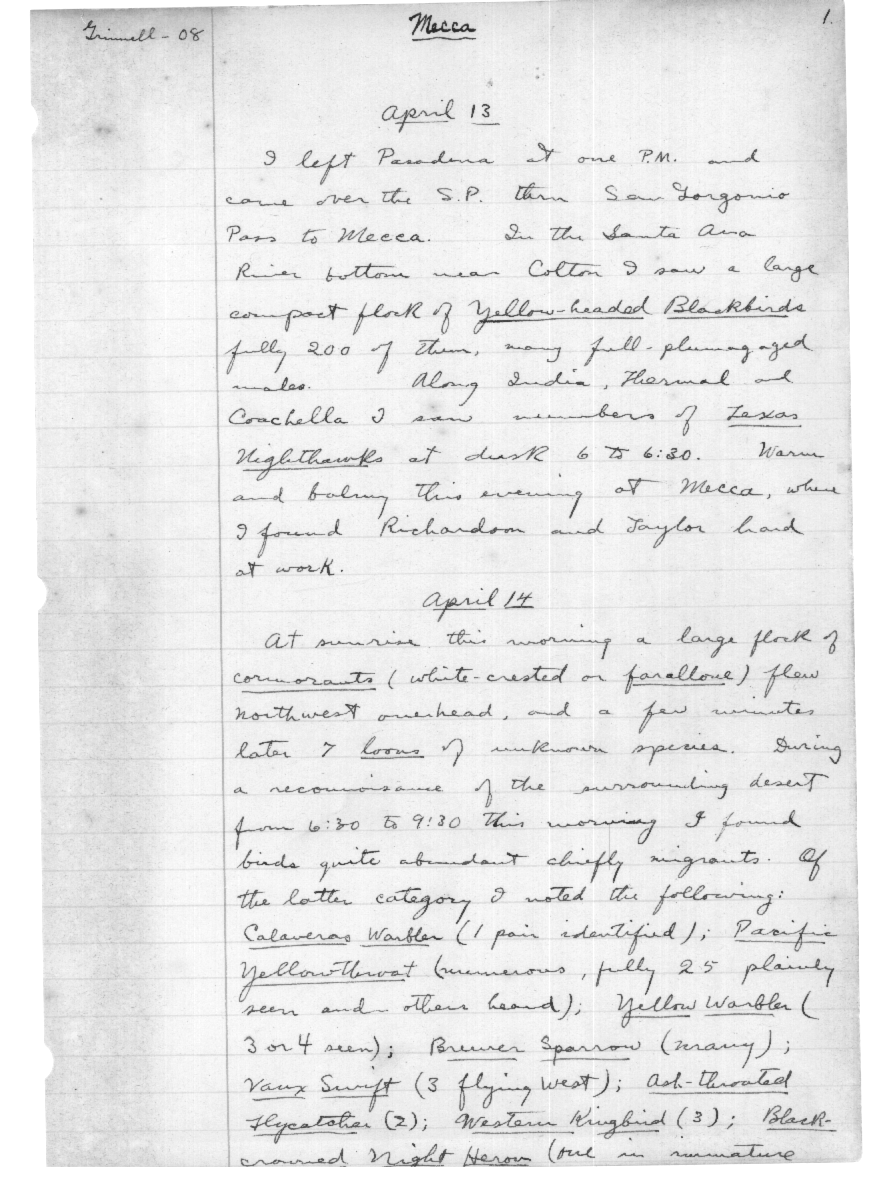 Grinnell - 08
Mecca
1.
April 13
I left Pasadena at one P.M. and
came over the S.P. thru San Gorgonio
Pass to Mecca. In the Santa Ana
River bottom near Colton I saw a large
compact flock of Yellow-headed Blackbirds
fully 200 of them, many full-plumagaged
males. Along India, Thermal and
Coachella I saw numbers of Texas
Nighthawks at dusk 6 to 6:30. Warm
and balmy this evening at Mecca, where
I found Richardson and Taylor hard
at work.
April 14
At sunrise this morning a large flock of
cormorants (white-crested or farallone) flew
northwest overhead, and a few minutes
later 7 loons of unknown species. During
a reconnoisance of the surrounding desert
from 6:30 to 9:30 this morning I found
birds quite abundant chiefly migrants. Of
the latter category I noted the following:
Calaveras Warbler (1 pair identified); Pacific
Yellowthroat (numerous, fully 25 plainly
seen and others heard); Yellow Warbler (
3 or 4 seen); Brewer Sparrow (many);
Vaux Swift (3 flying west); Ash-throated
Flycatcher (2); Western Kingbird (3); Black-
crowned Night Heron (one in immature